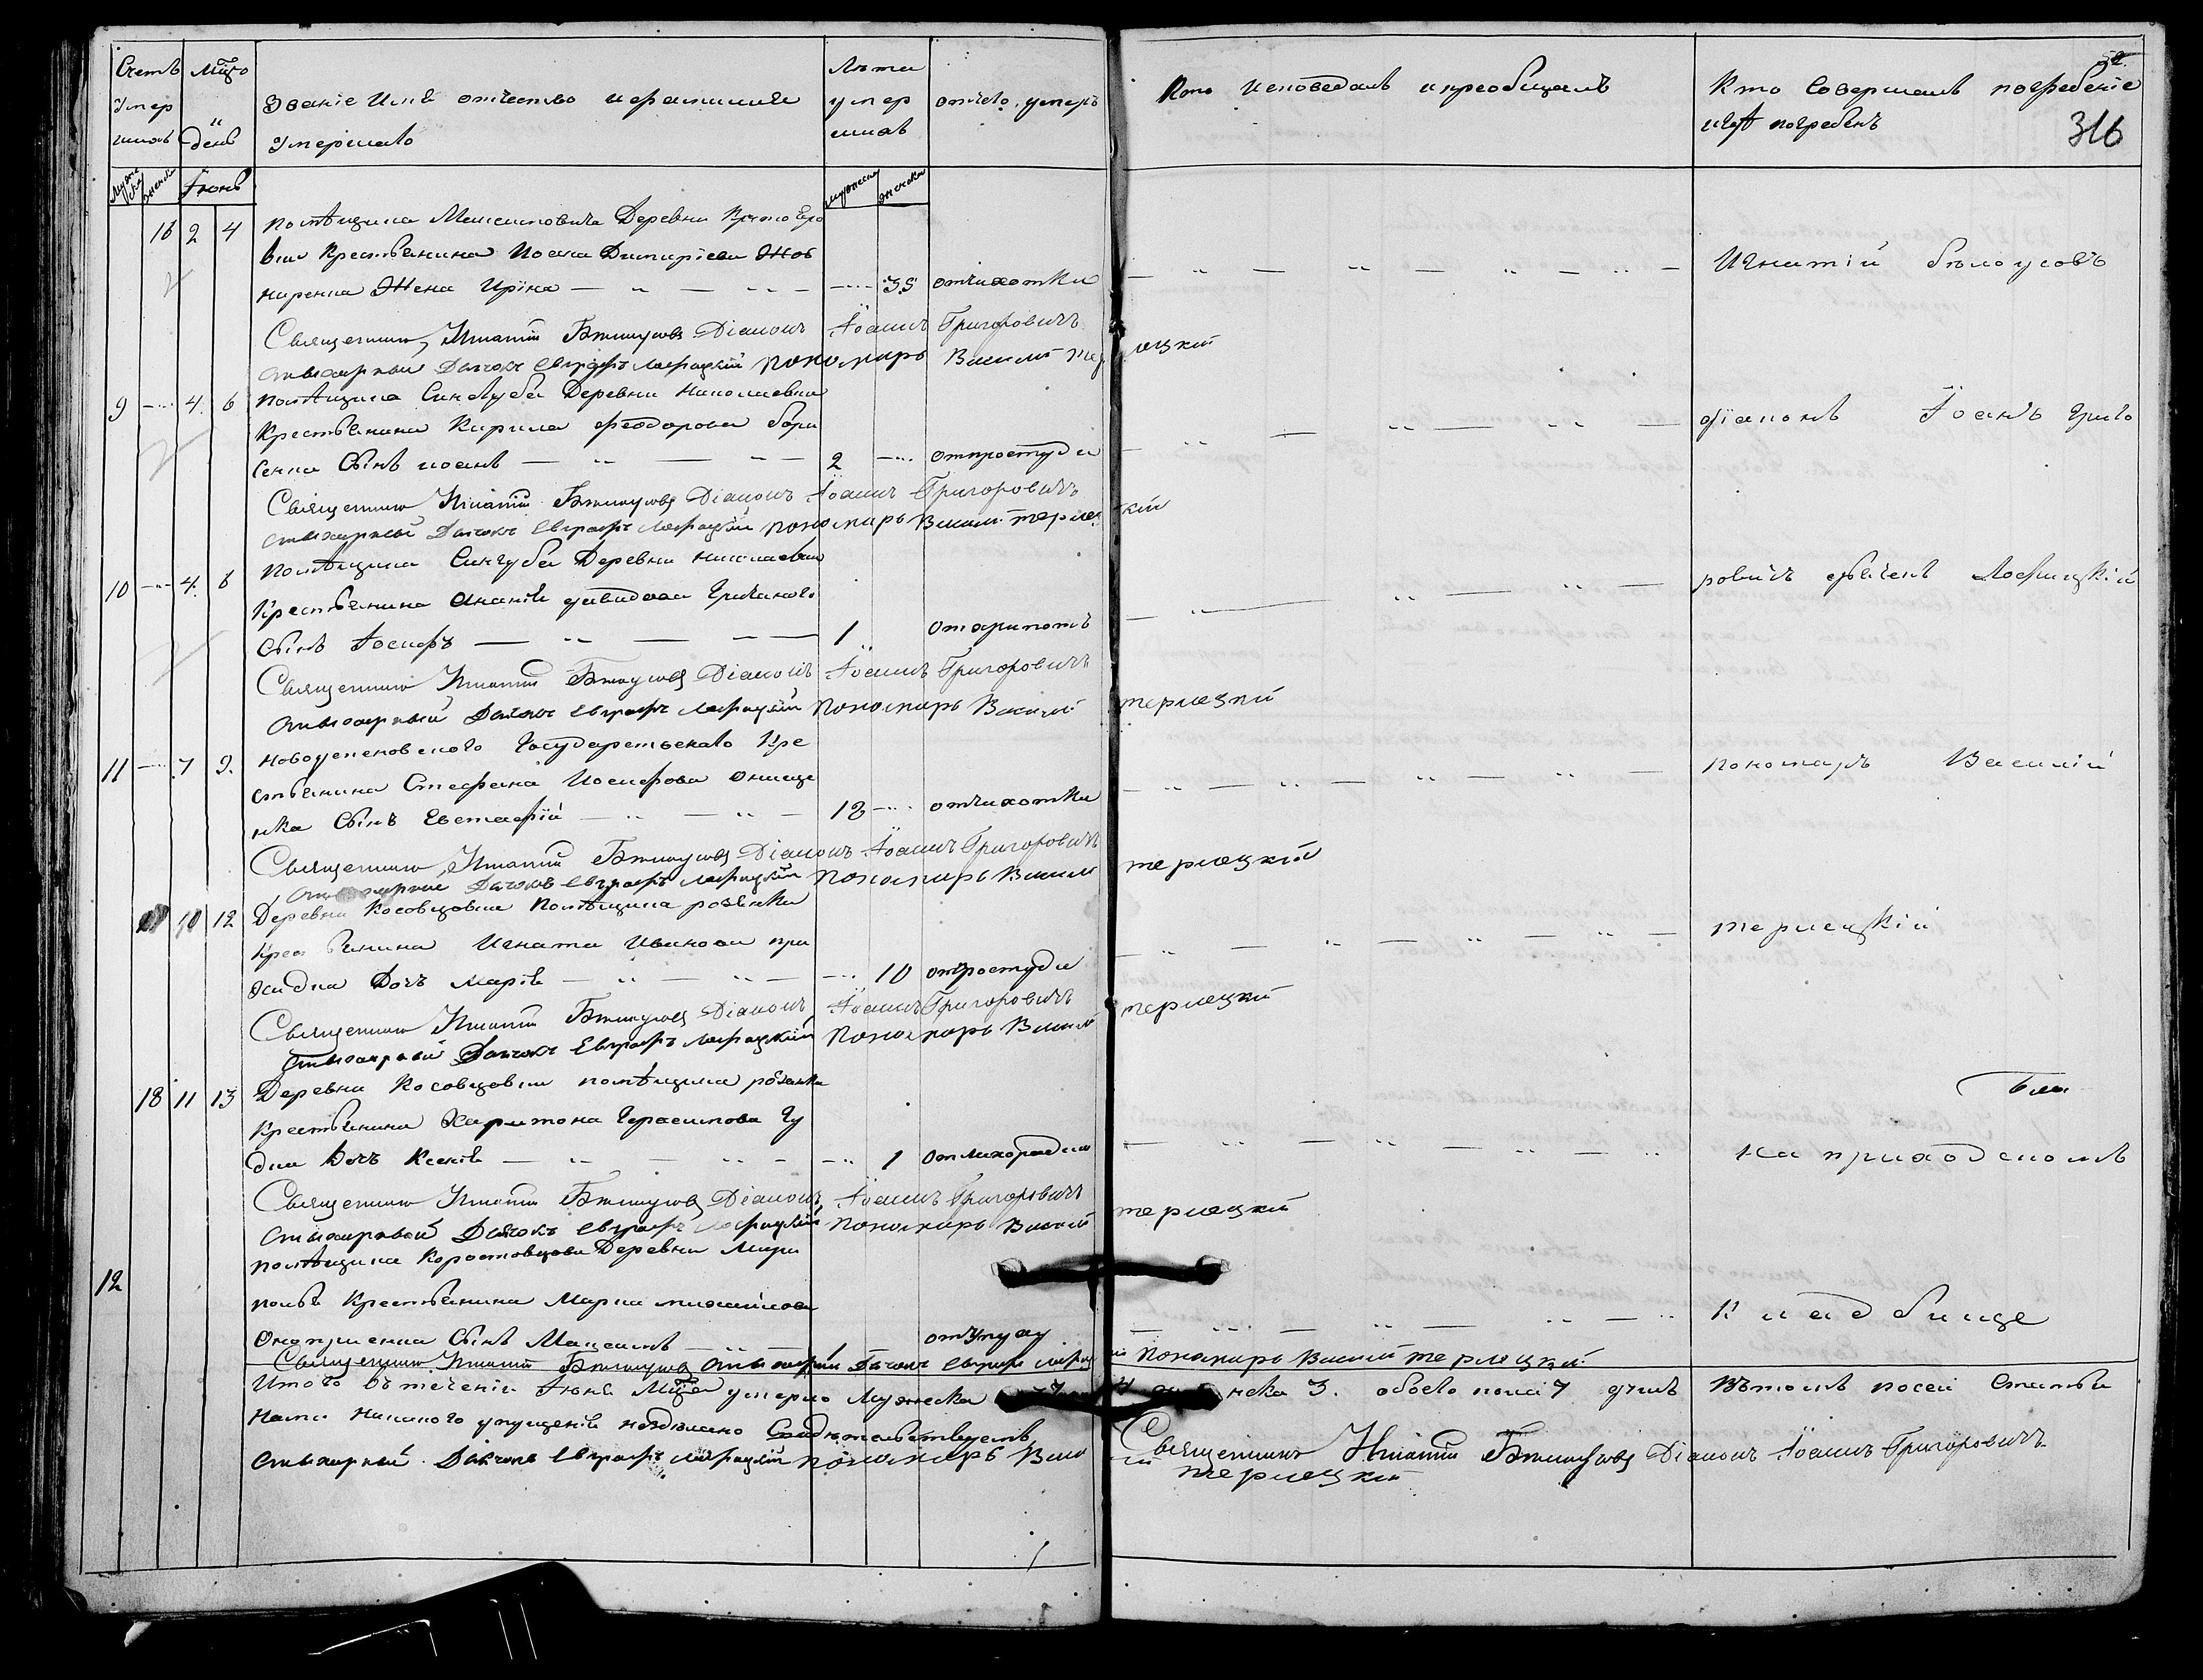 Счетъ
Умер
шихъ
Мцъ
и
день
Званіе Имя отчество и фамилія
Умершаго
Лѣта
умер
шихъ
отчего умеръ
Кто исповедалъ и преобщалъ
Кто Совершалъ погребеніе
и гдѣ погребенъ
316
Мужеска
женска
Іюнь
мужеска
женска
16 2 4 помѣщика Деревни
вки Крестьянина Иоана Димитріева Жов
ниренка Жена Ирина 35 отчихотки
Игнатій бѣлоусовъ
Священникъ Игнатій Бѣлоусовъ Діаконъ Іоаннъ Григоровичъ
Стихарный Дьячокъ Евграфъ Лофицкій пономаръ Василій терлецкій
9 4 6 помѣщика Синегуба Деревни Николаевки
Крестьянина Кирила Феодорова бори
сенка Сынъ иоанъ 2 отпростуди
діаконъ Іоанъ Григо
Священникъ Игнатій Бѣлоусовъ Діаконъ Іоаннъ Григоровичъ
Стихарный Дьячокъ Евграфъ Лофицкій пономаръ Василій терлецкій
помѣщика Синегуба Деревни Николаевки
10 4 6
Крестьянина Ананія давидова
Сынъ Іосифъ 1
ровичъ дьячекъ Лофицкій
Священникъ Игнатій Бѣлоусовъ Діаконъ Іоаннъ Григоровичъ
Стихарный Дьячокъ Евграфъ Лофицкій пономаръ Василій терлецкій
11 7 9 Государственаго Кре
стьянина Стефана Иосифова онище
нка Сынъ Евстафій 12 отчихотки
пономаръ Василій
Священникъ Игнатій Бѣлоусовъ Діаконъ Іоаннъ Григоровичъ
Дьячокъ Евграфъ Лофицкій пономаръ Василій терлецкій
10 12 Деревни Косовцовки помѣщика розѣнки
Крестьянина Игната Иванова при
ходка Дочъ Марія 10 отпростуди
терлецкій
Священникъ Игнатій Бѣлоусовъ Діаконъ Іоаннъ Григоровичъ
Стихарный Дьячокъ Евграфъ Лофицкій пономаръ Василій терлецкій
18 11 13 Деревни Косовцовки помѣщика розѣнки
Крестьянина Харитона Герасимова Гу
дки Дочъ Ксенія 1 отлихорадки
на приходскомъ
Священникъ Игнатій Бѣлоусовъ Діаконъ Іоаннъ Григоровичъ
Стихарный Дьячокъ Евграфъ Лофицкій пономаръ Василій терлецкій
12 помѣщика Коростовцова Деревни Мари
полья Крестьянина Марка михайлова
Сынъ Максимъ
Кладбище
Священникъ Игнатій Бѣлоусовъ Стихарный Дьячокъ Евграфъ Лофицкій пономаръ Василій терлецкій
Итого Втѣченіи Іюня Мца умерло Мужеска 4 женска 3. обоего пола 7 душъ Вътомъ посей Статьи
Нами никакого упущенія нездѣлано Свидѣтельствуемъ
Священникъ Игнатій Бѣлоусовъ Діаконъ Іоаннъ Григоровичъ
Стихарный Дьячокъ Евграфъ Лофицкій пономаръ Василій терлецкій